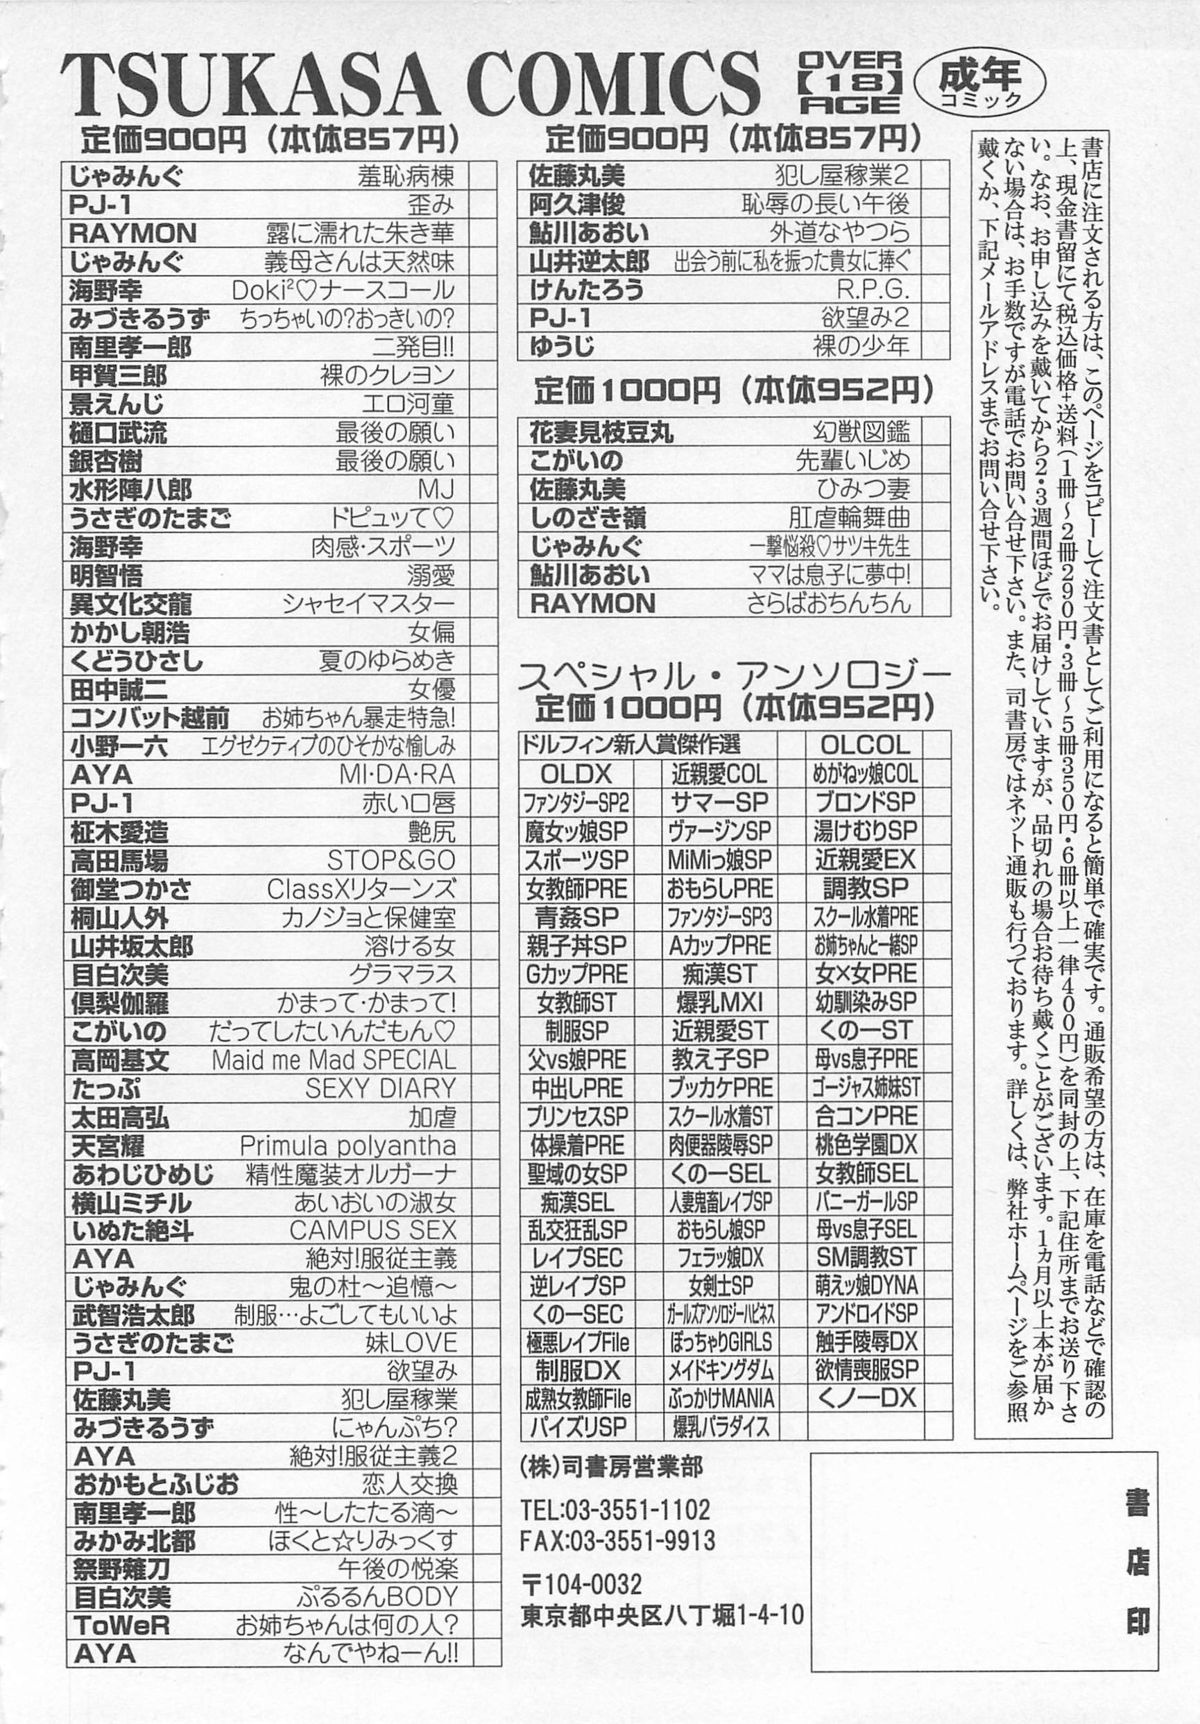 TSUKASA COMICS
OVER
【18】
AGE
成年
コミック
定価900円（本体857円）
じゃみんぐ 羞恥病棟
PJ-1 歪み
RAYMON 露に濡れた朱き華
じゃみんぐ 義母さんは天然味
海野幸 Doki²♡ナースコール
みづきるうず ちっちゃいの?おっきいの?
南里孝一郎 二発目!!
甲賀三郎 裸のクレヨン
景えんじ エロ河童
樋口武流 最後の願い
銀杏樹 最後の願い
水形陣八郎 MJ
うさぎのたまご ドピュッて♡
海野幸 肉感・スポーツ
明智悟 溺愛
異文化交龍 シャセイマスター
かかし朝浩 女偏
くどうひさし 夏のゆらめき
田中誠二 女優
コンバット越前 お姉ちゃん暴走特急!
小野一六 エグゼクティブのひそかな愉しみ
AYA MI・DA・RA
PJ-1 赤い口唇
柾木愛造 艶尻
高田馬場 STOP&GO
御堂つかさ ClassXリターンズ
桐山人外 カノジョと保健室
山井坂太郎 溶ける女
目白次美 グラマラス
倶梨伽羅 かまって・かまって!
こがいの だってしたいんだもん♡
高岡基文 Maid me Mad SPECIAL
たっぷ SEXY DIARY
太田高弘 加虐
天宮耀 Primula polyantha
あわじひめじ 精性魔装オルガーナ
横山ミチル あいおいの淑女
いぬた絶斗 CAMPUS SEX
AYA 絶対!服従主義
じゃみんぐ 鬼の杜～追憶～
武智浩太郎 制服…よごしてもいいよ
うさぎのたまご 妹LOVE
PJ-1 欲望み
佐藤丸美 犯し屋稼業
みづきるうず にゃんぷち?
AYA 絶対!服従主義2
おかもとふじお 恋人交換
南里孝一郎 性～したたる滴～
みかみ北都 ほくと☆りみっくす
祭野薙刀 午後の悦楽
目白次美 ぷるるんBODY
ToWeR お姉ちゃんは何の人?
AYA なんでやねーん!!
定価900円（本体857円）
佐藤丸美 犯し屋稼業2
阿久津俊 恥辱の長い午後
鮎川あおい 外道なやつら
山井逆太郎 出会う前に私を振った貴女に捧ぐ
けんたろう R.P.G.
PJ-1 欲望み2
ゆうじ 裸の少年
定価1000円（本体952円）
花妻見枝豆丸 幻獣図鑑
こがいの 先輩いじめ
佐藤丸美 ひみつ妻
しのざき嶺 肛虐輪舞曲
じゃみんぐ 一撃悩殺♡サツキ先生
鮎川あおい ママは息子に夢中!
RAYMON さらばおちんちん
スペシャル・アンソロジー
定価1000円（本体952円）
ドルフィン新人賞傑作選 OLCOL
OLDX 近親愛COL めがねッ娘COL
ファンタジーSP2 サマーSP ブロンドSP
魔女ッ娘SP ヴァージンSP 湯けむりSP
スポーツSP MiMiっ娘SP 近親愛EX
女教師PRE おもらしPRE 調教SP
青姦SP ファンタジーSP3 スクール水着PRE
親子丼SP AカップPRE お姉ちゃんと一緒SP
GカップPRE 痴漢ST 女×女PRE
女教師ST 爆乳MXI 幼馴染みSP
制服SP 近親愛ST くの一ST
父vs娘PRE 教え子SP 母vs息子PRE
中出しPRE ブッカケPRE ゴージャス姉妹ST
プリンセスSP スクール水着ST 合コンPRE
体操着PRE 肉便器陵辱SP 桃色学園DX
聖域の女SP くの一SEL 女教師SEL
痴漢SEL 人妻鬼畜レイプSP バニーガールSP
乱交狂乱SP おもらし娘SP 母vs息子SEL
レイプSEC フェラッ娘DX SM調教ST
逆レイプSP 女剣士SP 萌えッ娘DYNA
くの一SEC ガールズアンソロジーハピネス アンドロイドSP
極悪レイプFile ぽっちゃりGIRLS 触手陵辱DX
制服DX メイドキングダム 欲情喪服SP
成熟女教師File ぶっかけMANIA くノ一DX
パイズリSP 爆乳パラダイス
(株)司書房営業部
TEL:03-3551-1102
FAX:03-3551-9913
〒104-0032
東京都中央区八丁堀1-4-10
書店に注文される方は、このページをコピーして注文書としてご利用になると簡単で確実です。通販希望の方は、在庫を電話などで確認の
上、現金書留にて税込価格+送料(1冊～2冊290円・3冊～5冊350円・6冊以上一律400円)を同封の上、下記住所までお送り下さ
い。なお、お申し込みを戴いてから2・3週間ほどでお届けしていますが、品切れの場合お待ち戴くことがございます。1ヵ月以上本が届か
ない場合は、お手数ですが電話でお問い合せ下さい。また、司書房ではネット通販も行っております。詳しくは、弊社ホームページをご参照
戴くか、下記メールアドレスまでお問い合せ下さい。
書店印